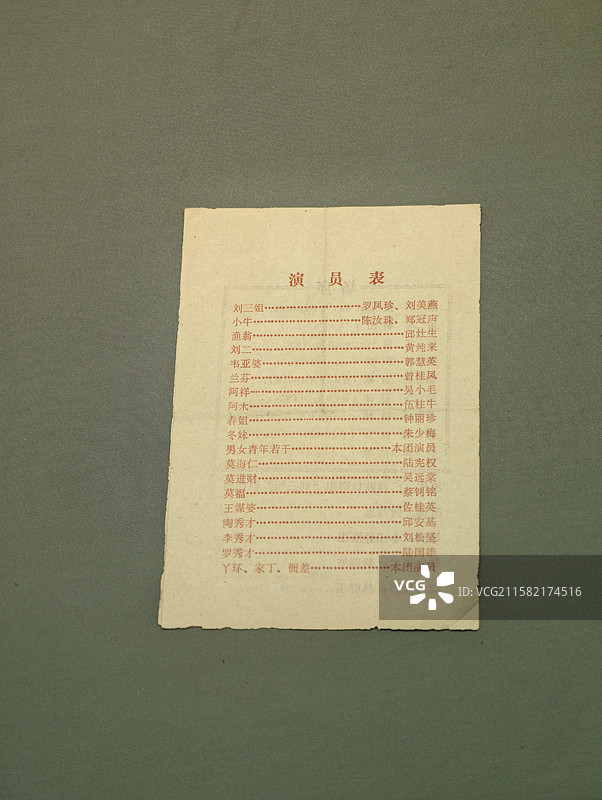 演员表
刘三姐……………………罗凤珍、刘美燕
小牛……………………陈汝珠、郑冠声
渔翁……………………邱灶生
刘二……………………黄纯来
韦亚婆……………………郭慧英
兰芬……………………曾桂凤
阿祥……………………吴小毛
阿木……………………伍柱牛
春姐……………………钟丽珍
冬妹……………………朱少梅
男女青年若干……………………本团演员
莫海仁……………………陆宪权
莫进财……………………吴远棠
莫福……………………蔡钊铭
王媒婆……………………佐桂英
陶秀才……………………邱安基
李秀才……………………刘松坚
罗秀才……………………陆国雄
丫环、家丁、衙差……………………本团演员
VCG
ID:VCG211582174516